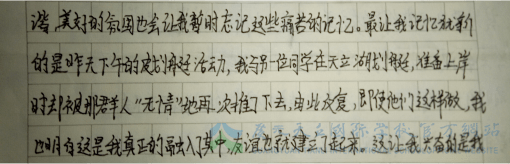 谐、美好的氛围也会让我暂时忘记这些痛苦的记忆。最让我记忆犹新
的是昨天下午的皮划艇活动，我与另一位同学在天立湖划艇，准备上岸
时却被那群人“无情”地再一次推了下去，由此反复，即使他们这样做，我
也明白这是我真正的融入其中，友谊也就建立了起来。这让我大有的是我